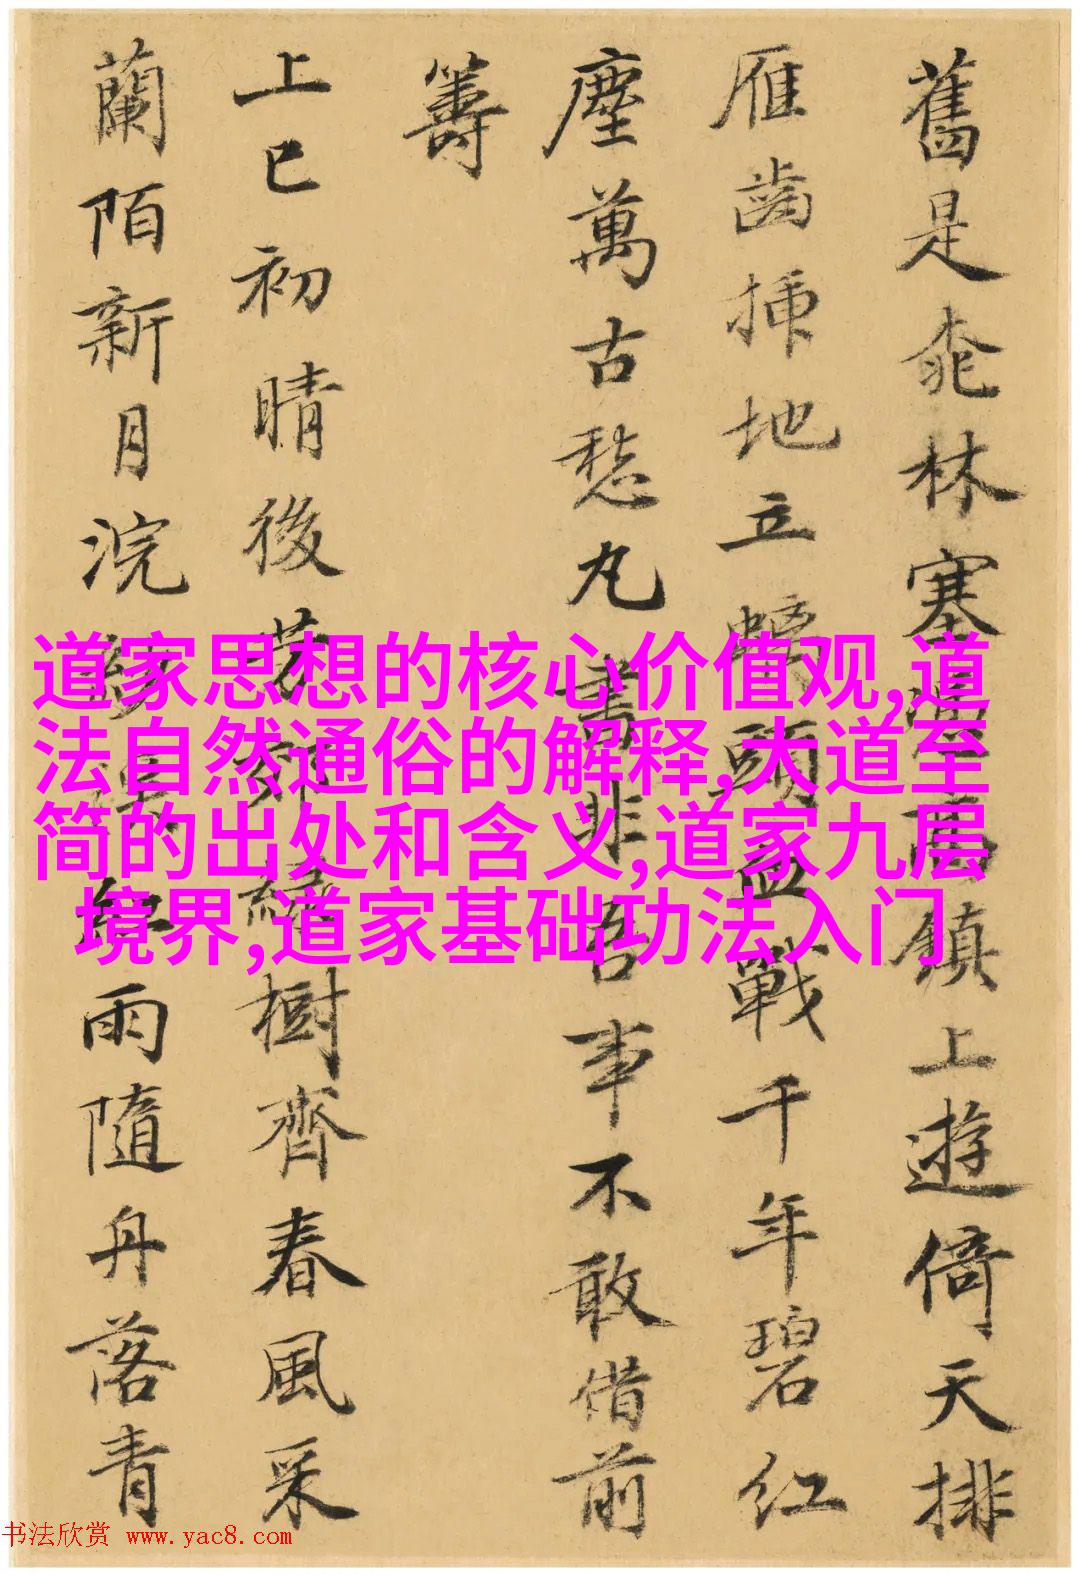 舊是桃林塞潼高鎮上遊倚天排
雁齒插地立螭頭血戰千年碧紅
塵萬古愁丸書非吾事不敢借前
籌
上巳初晴後芳郊綠樹齊春風采
蘭陌新月浣 溪 紅雨隨舟落青
道家思想的核心价值观,道
法自然通俗的解释,大道至
简的出处和含义,道家九层
境界,道家基础功法入门
书法欣赏 www.yac8.com